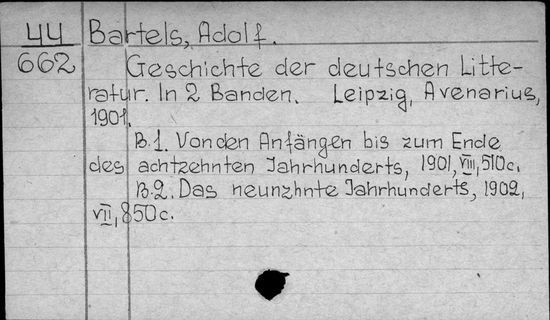 44 Bartels, Adolf.
662 Geschichte der deutschen Litte-
ratur. In 2 Banden. Leipzig, Avenarius,
1901.
B.1. Von den Anfängen bis zum Ende
des achtzehnten Jahrhunderts, 1901, VIII, 510c.
B.2. Das neunzhnte Jahrhunderts, 1902,
VII, 850c.